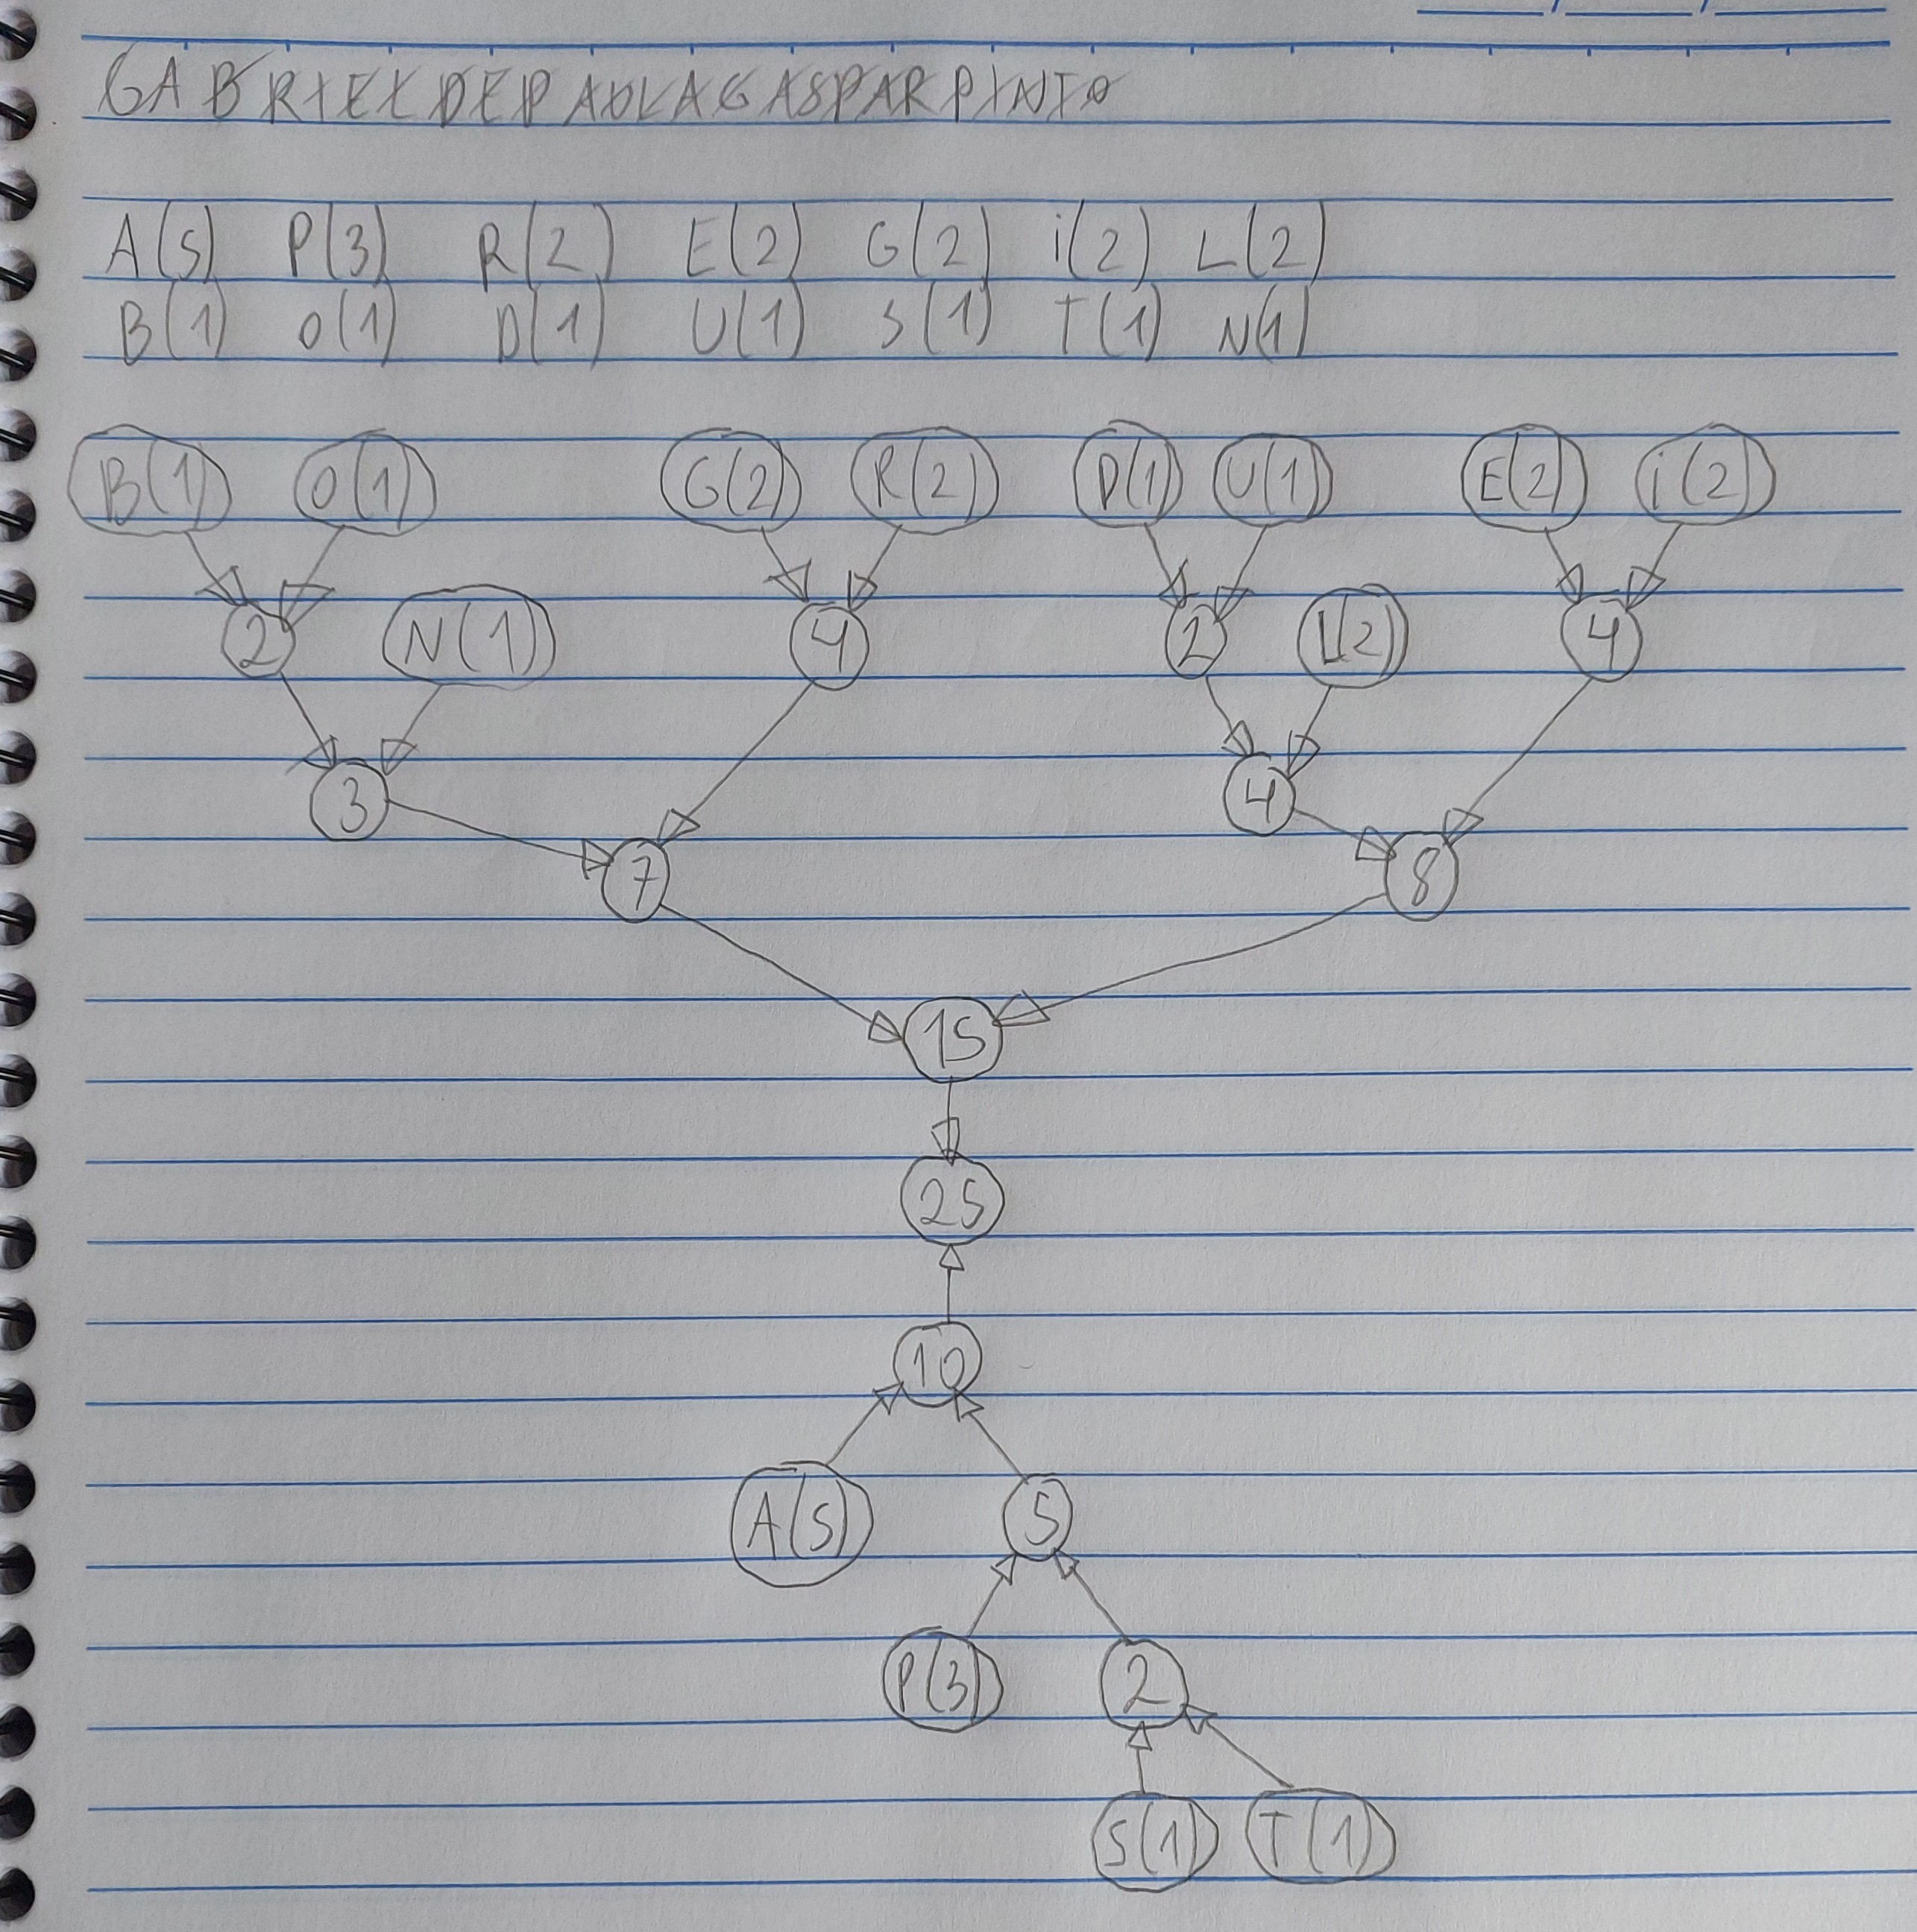 GABRIELDEPAULAGASPARPINTO
A(5) P(3) R(2) E(2) G(2) i(2) L(2)
B(1) O(1) D(1) U(1) S(1) T(1) N(1)
B(1) O(1) G(2) R(2) D(1) U(1) E(2) i(2)
2 N(1) 4 2 L(2) 4
3 4
7 8
15
25
10
A(5) 5
P(3) 2
S(1) T(1)